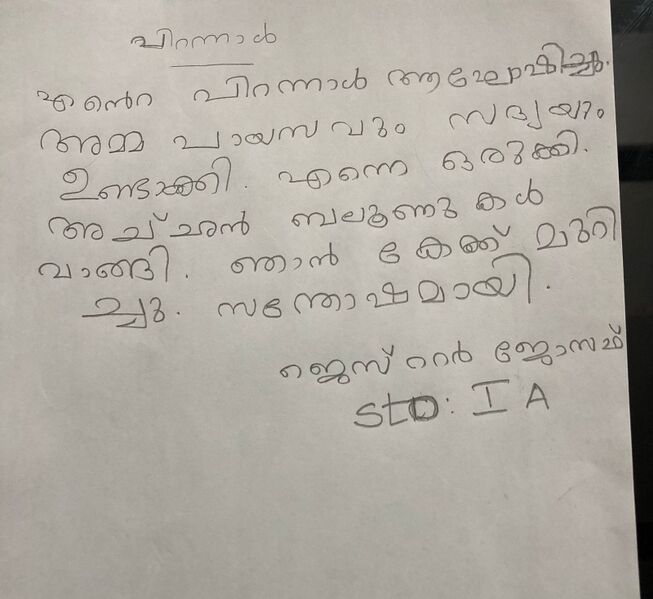 പിറന്നാൾ
എന്റെ പിറന്നാൾ ആഘോഷിച്ചു.
അമ്മ പായസവും സദ്യയും
ഉണ്ടാക്കി. എന്നെ ഒരുക്കി.
അച്ഛൻ ബലൂണുകൾ
വാങ്ങി. ഞാൻ കേക്ക് മുറി
ച്ചു. സന്തോഷമായി.
ജെസ്റ്റർ ജോസഫ്
STD: I A